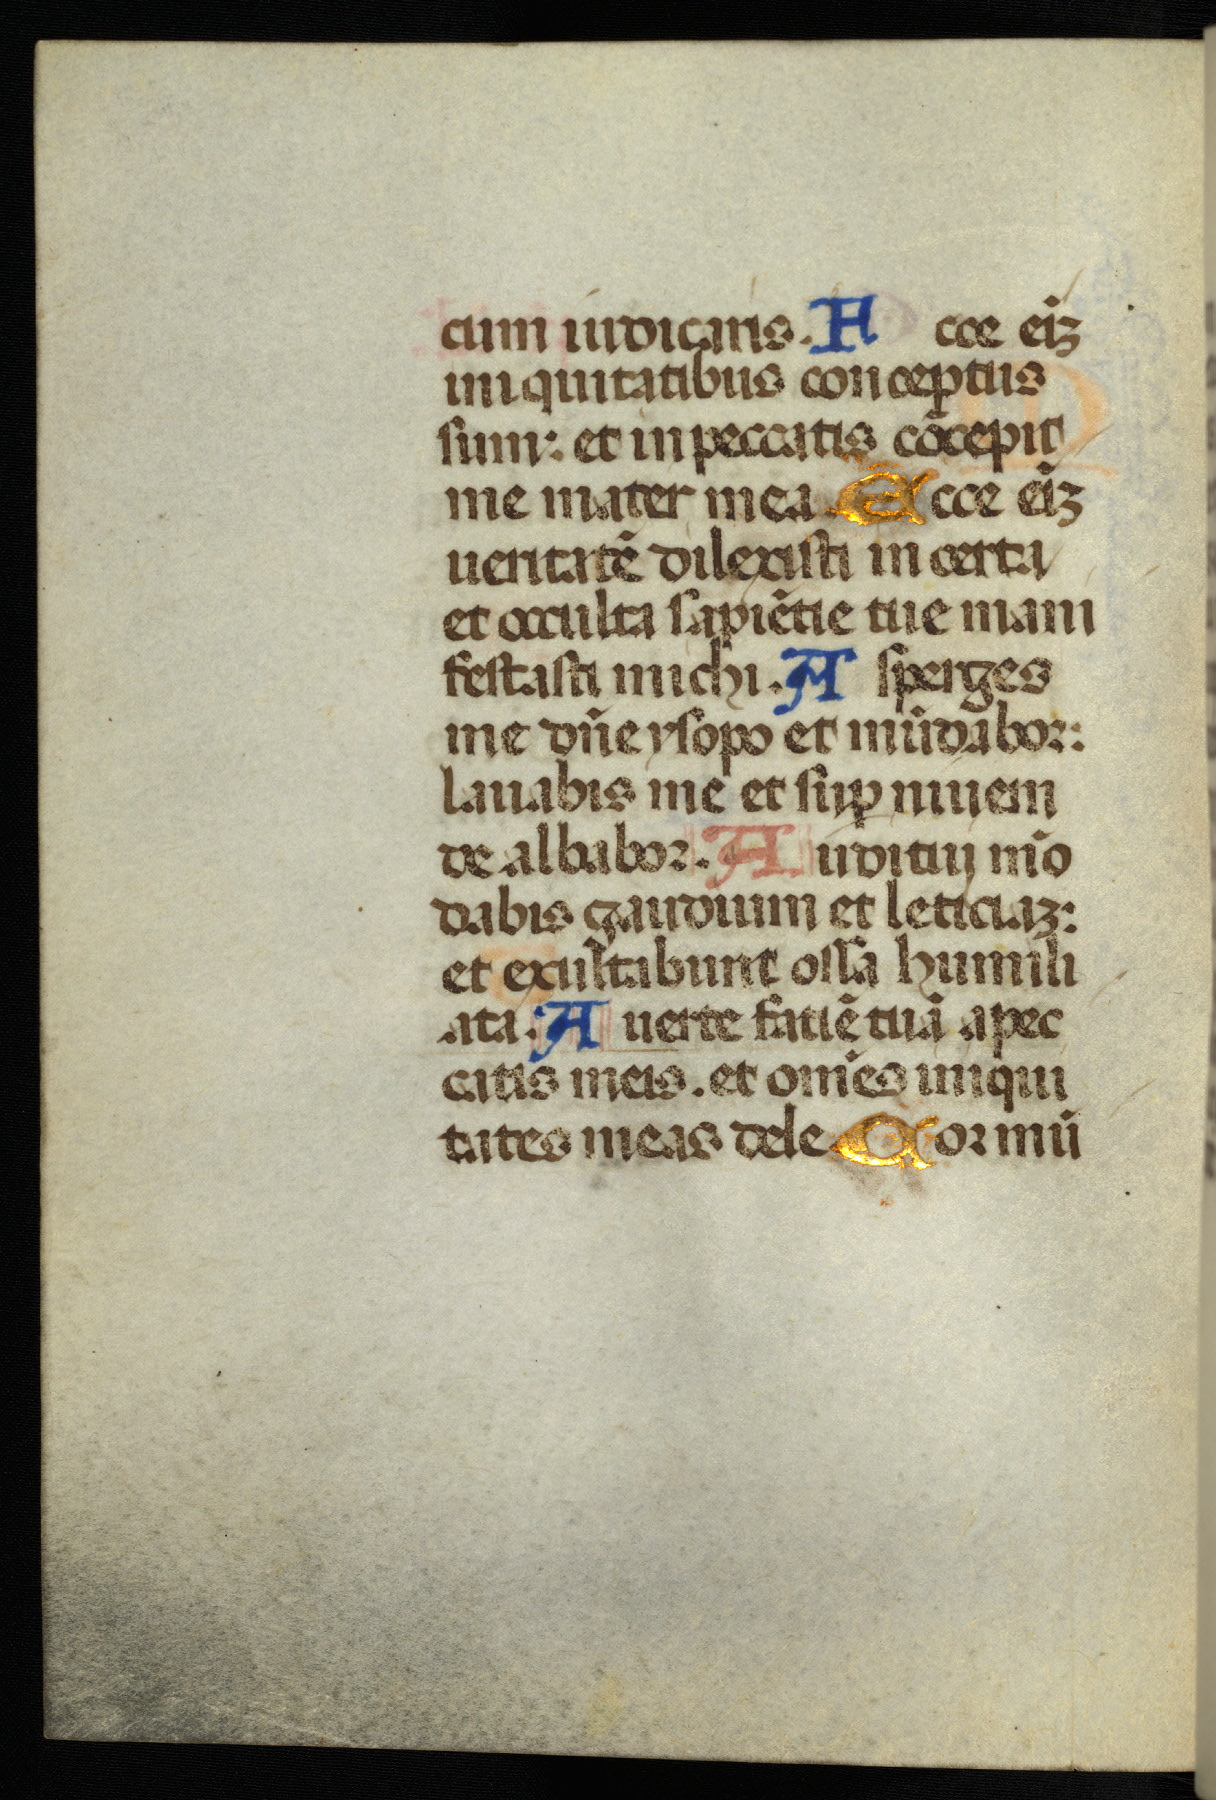 cum iudicaris. A cce eiꝫ
iniquitatibus conceptus
sum: et in peccatis cōcepit
me mater mea Ecce eiꝫ
ueritatē dilexisti incerta
et occulta sapiētie tue mani
festasti michi. A sperges
me dn̄e ysopo et mūdabor:
lauabis me et suꝑ niuem
de albabor. A uditui m̄o
dabis gaudium et leticiaꝫ:
et exultabunt ossa humili
ata. A uerte fatiē tuā a pec
catis meis. et om̄es iniqui
tates meas dele Cor mū